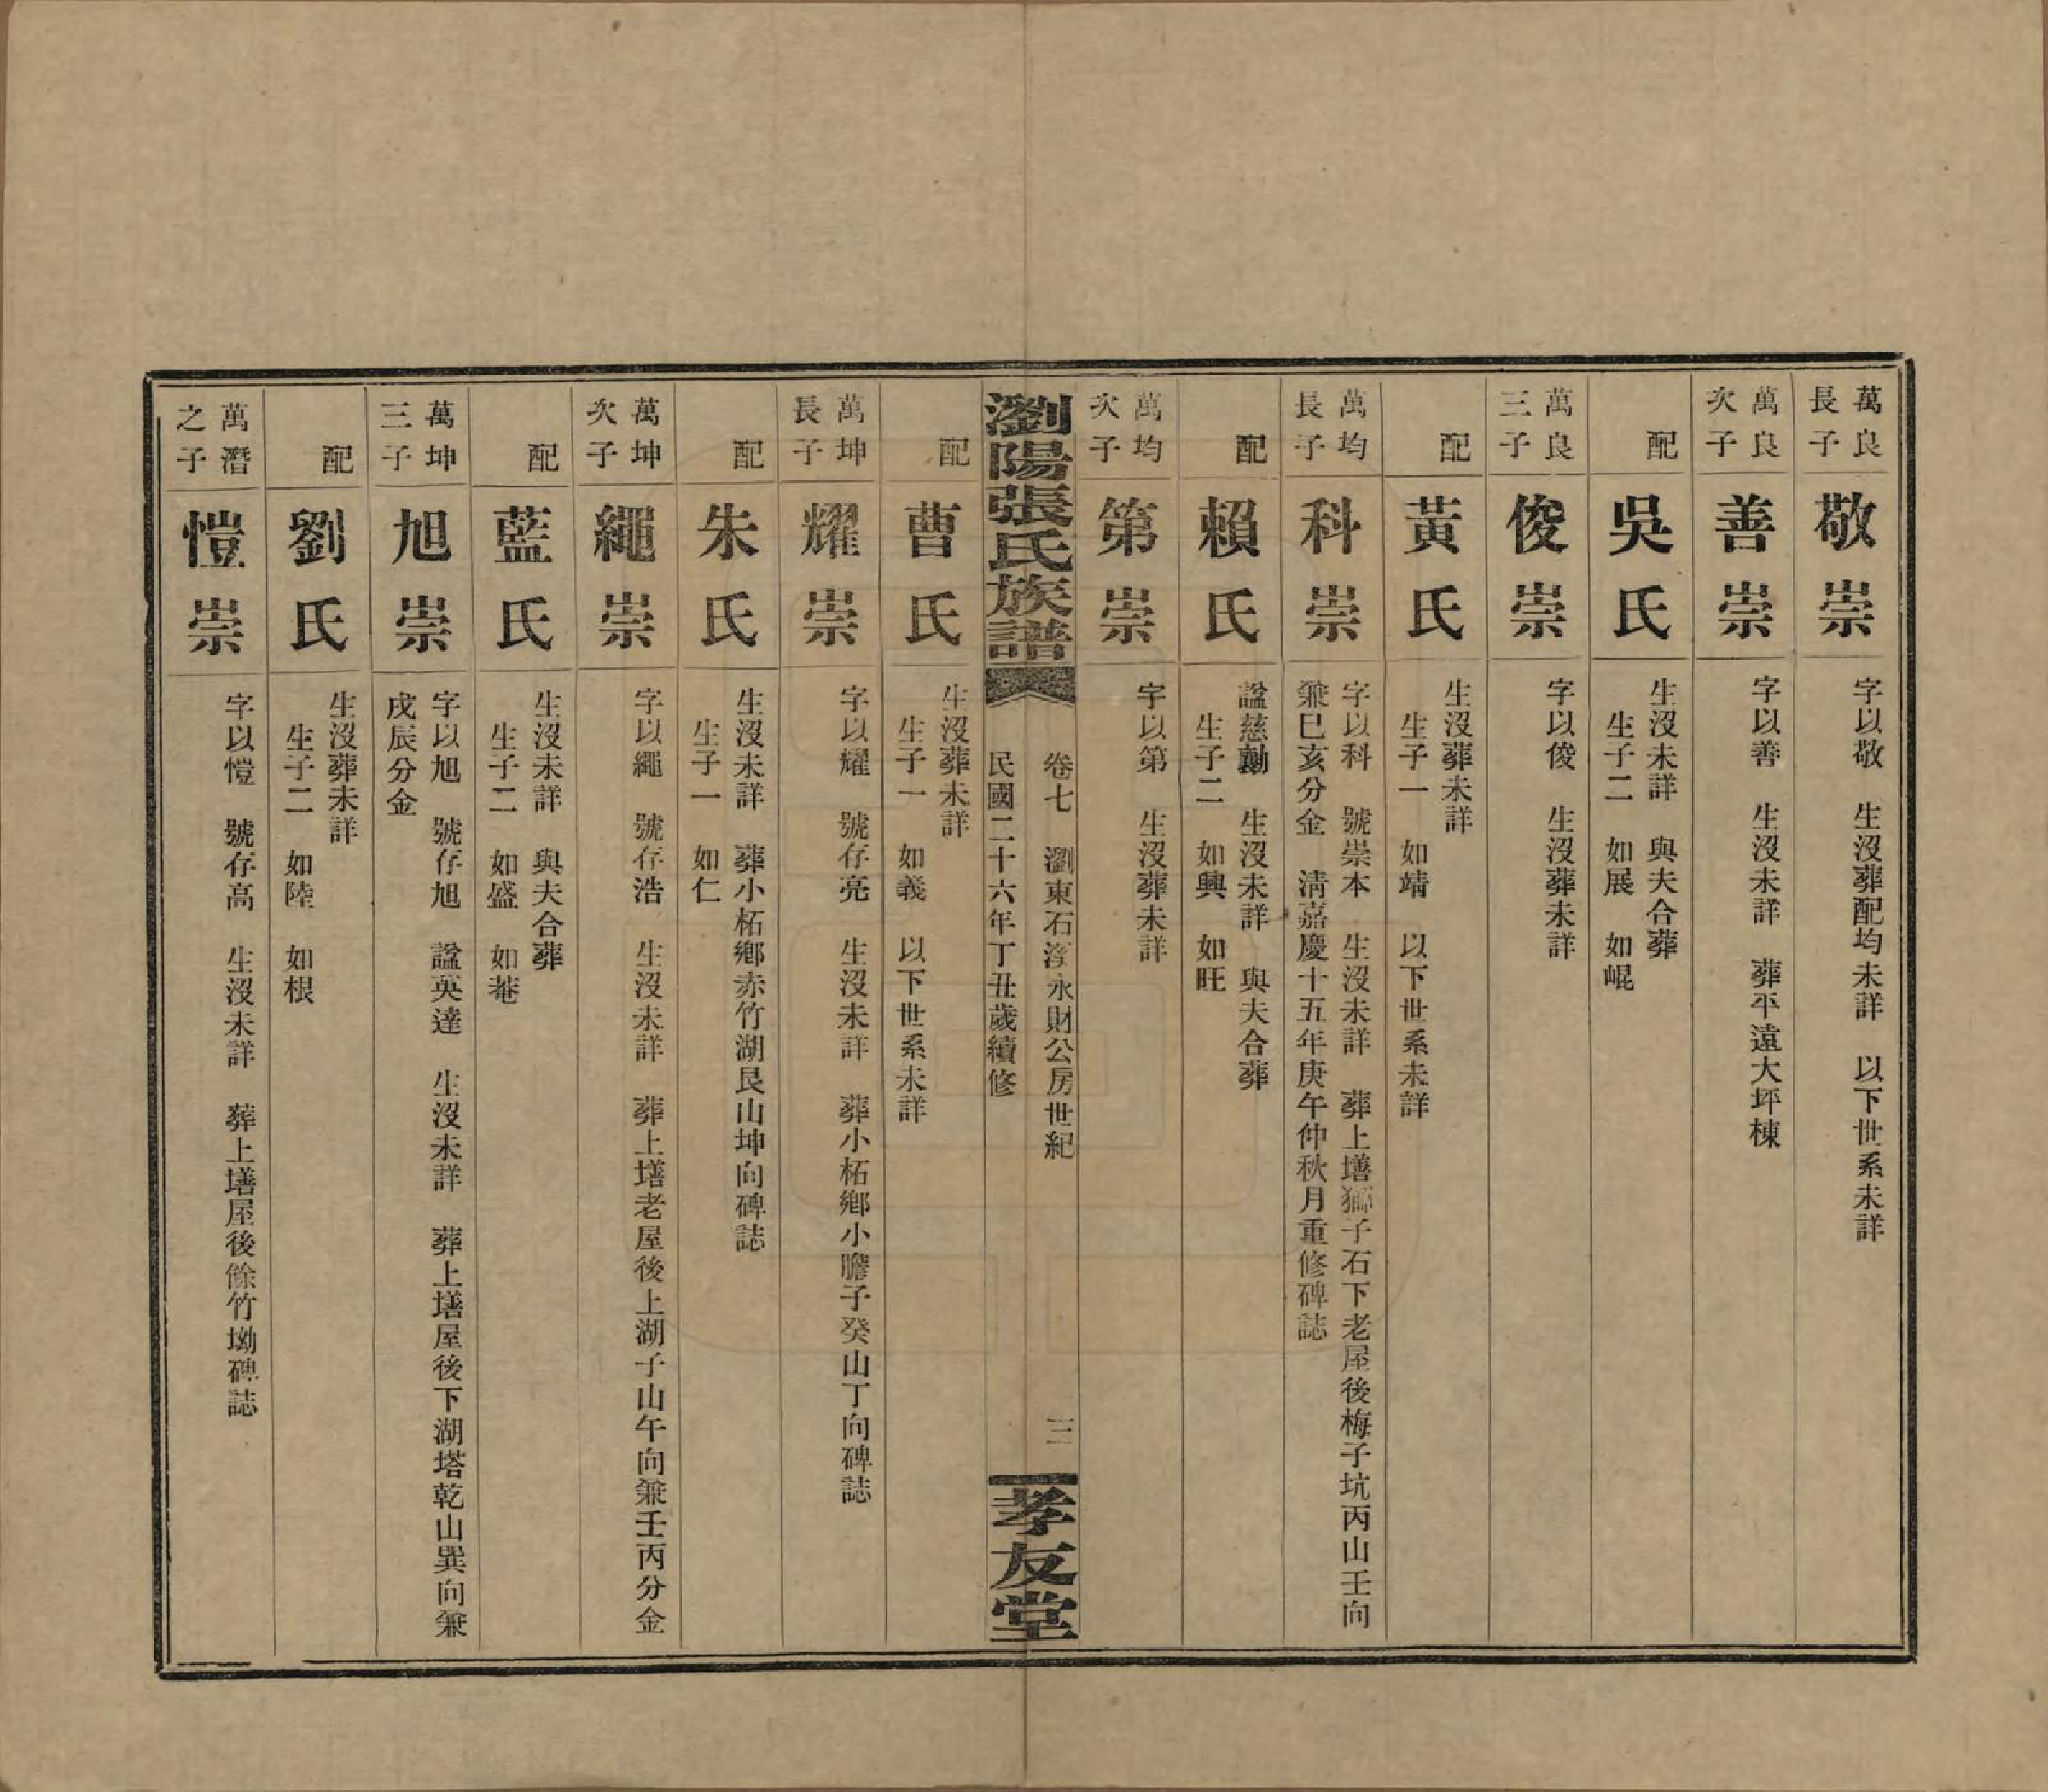 萬良
長子
敬崇
字以敬　生沒葬配均未詳　以下世系未詳
萬良
次子
善崇
字以善　生沒未詳　葬平遠大坪棟
配
吳氏
生沒未詳　與夫合葬
生子二　如展　如崐
萬良
三子
俊崇
字以俊　生沒葬未詳
配
黃氏
生沒葬未詳
生子一　如靖　以下世系未詳
萬均
長子
科崇
字以科　號崇本　生沒未詳　葬上墡獅子石下老屋後梅子坑丙山壬向
兼巳亥分金　淸嘉慶十五年庚午仲秋月重修碑誌
配
賴氏
諡慈勷　生沒未詳　與夫合葬
生子二　如興　如旺
萬均
次子
第崇
字以第　生沒葬未詳
瀏陽張氏族譜
卷七　瀏東石溪永財公房世紀　三
民國二十六年丁丑歲續修
孝友堂
配
曹氏
生沒葬未詳
生子一　如義　以下世系未詳
萬坤
長子
耀崇
字以耀　號存亮　生沒未詳　葬小柘鄉小膽子癸山丁向碑誌
配
朱氏
生沒未詳　葬小柘鄉赤竹湖艮山坤向碑誌
生子一　如仁
萬坤
次子
繩崇
字以繩　號存浩　生沒未詳　葬上墡老屋後上湖子山午向兼壬丙分金
配
藍氏
生沒未詳　與夫合葬
生子二　如盛　如菴
萬坤
三子
旭崇
字以旭　號存旭　諡英達　生沒未詳　葬上墡屋後下湖塔乾山巽向兼
戌辰分金
配
劉氏
生沒葬未詳
生子二　如陸　如根
萬潛
之子
愷崇
字以愷　號存高　生沒未詳　葬上墡屋後餘竹坳碑誌